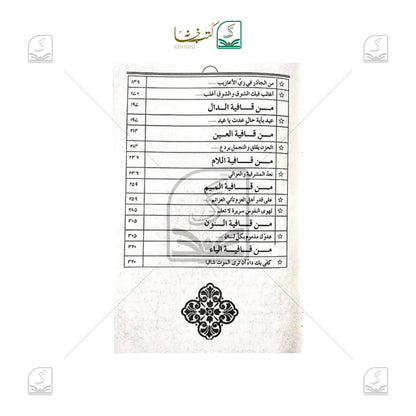 كتب خانہ
☆ من الجآذر في زيّ الأعاريب ...... ١٣٦
☆ أغالب فيك الشوق والشوق أغلب ...... ١٧٠
من قافية الدال ١٩٧
☆ عيد بأية حال عدت يا عيد ...... ١٩٧
من قافية العين ٢١٣
☆ الحزن يقلق والتجمل يردع ...... ٢١٣
من قافية اللام ٢٣٦
☆ نعدّ المشرفية والعوالي ٢٣٦
من قافية الميم ٢٥٩
☆ على قدر أهل العزم تأتي العزائم ...... ٢٥٩
☆ لهوى النفوس سريرة لا تعلم ٢٨٥
من قافية النون ٣٠٥
☆ عدوّك مذموم بكلّ لسان ٣٠٥
من قافية الياء ٣٣٠
☆ كفى بك داء أن ترى الموت شافيا ٣٣٠